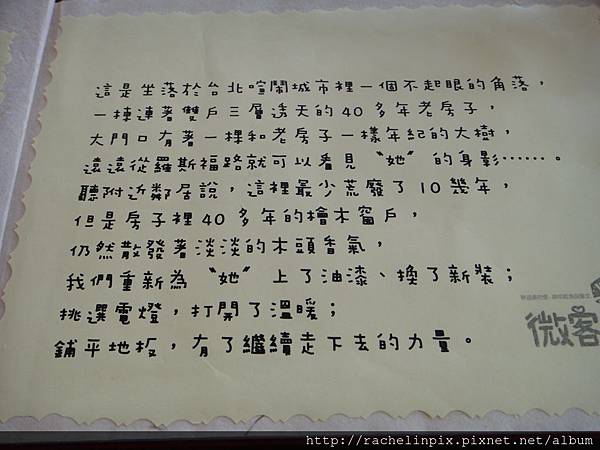 這是坐落於台北喧鬧城市裡一個不起眼的角落，
一棟連著雙戶三層透天的40多年老房子，
大門口有著一棵和老房子一樣年紀的大樹，
遠遠從羅斯福路就可以看見〝她〞的身影……。
聽附近鄰居說，這裡最少荒廢了10幾年，
但是房子裡40多年的檜木窗戶，
仍然散發著淡淡的木頭香氣，
我們重新為〝她〞上了油漆、換了新裝；
挑選電燈，打開了溫暖；
鋪平地板，有了繼續走下去的力量。
微客
http://rachelinpix.pixnet.net/album